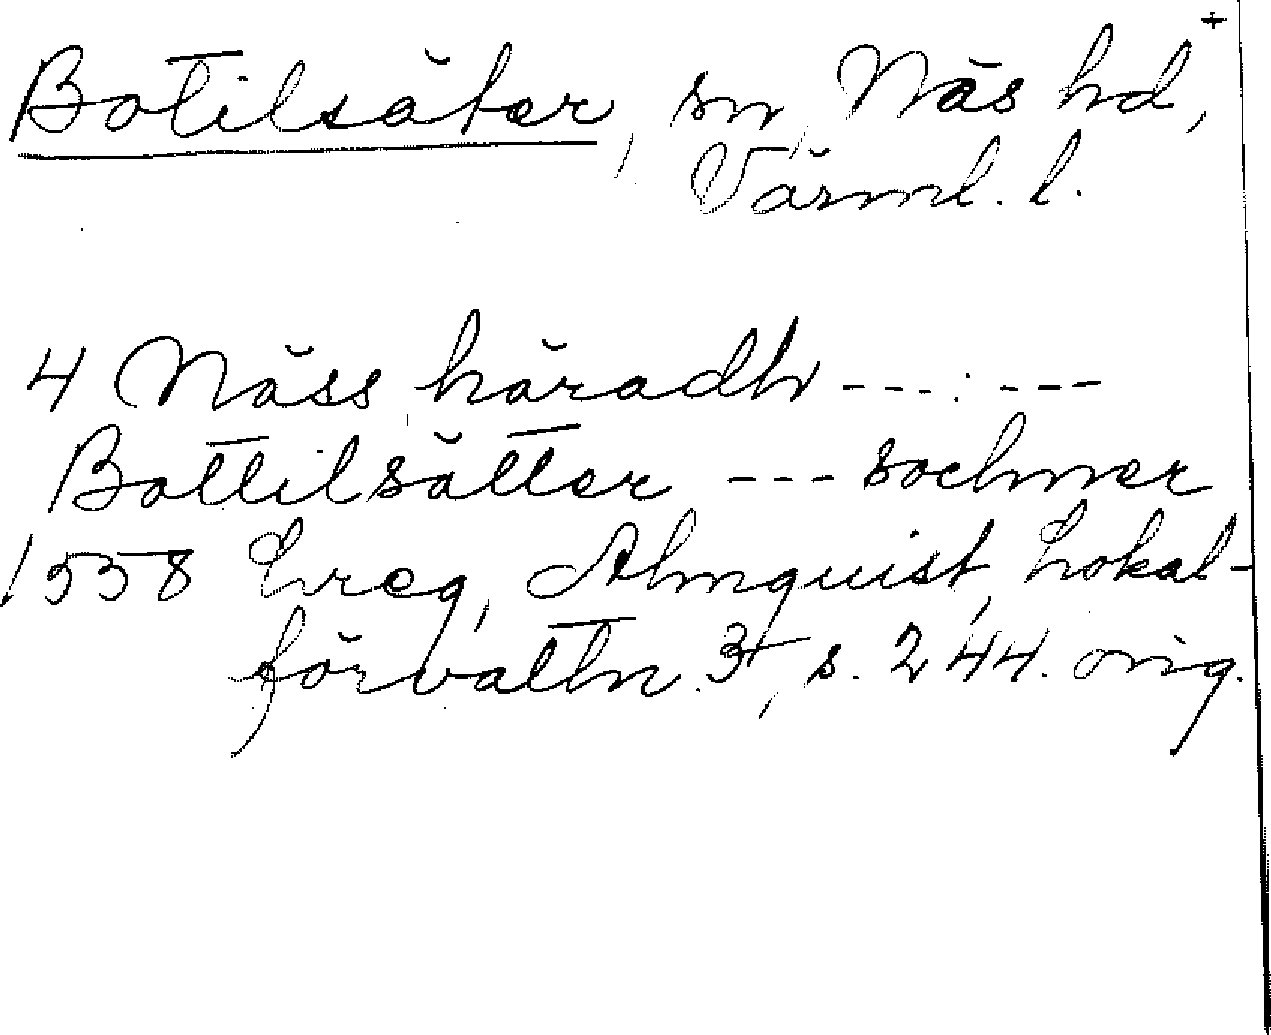 +
Botilsäter, sn, Näs hd,
Värml. l.
4 Näss häradh ---:---
Bottilsätter --- sochner
1558 Lreg, Almquist, Lokal-
förvaltn. 3, s. 244. orig.